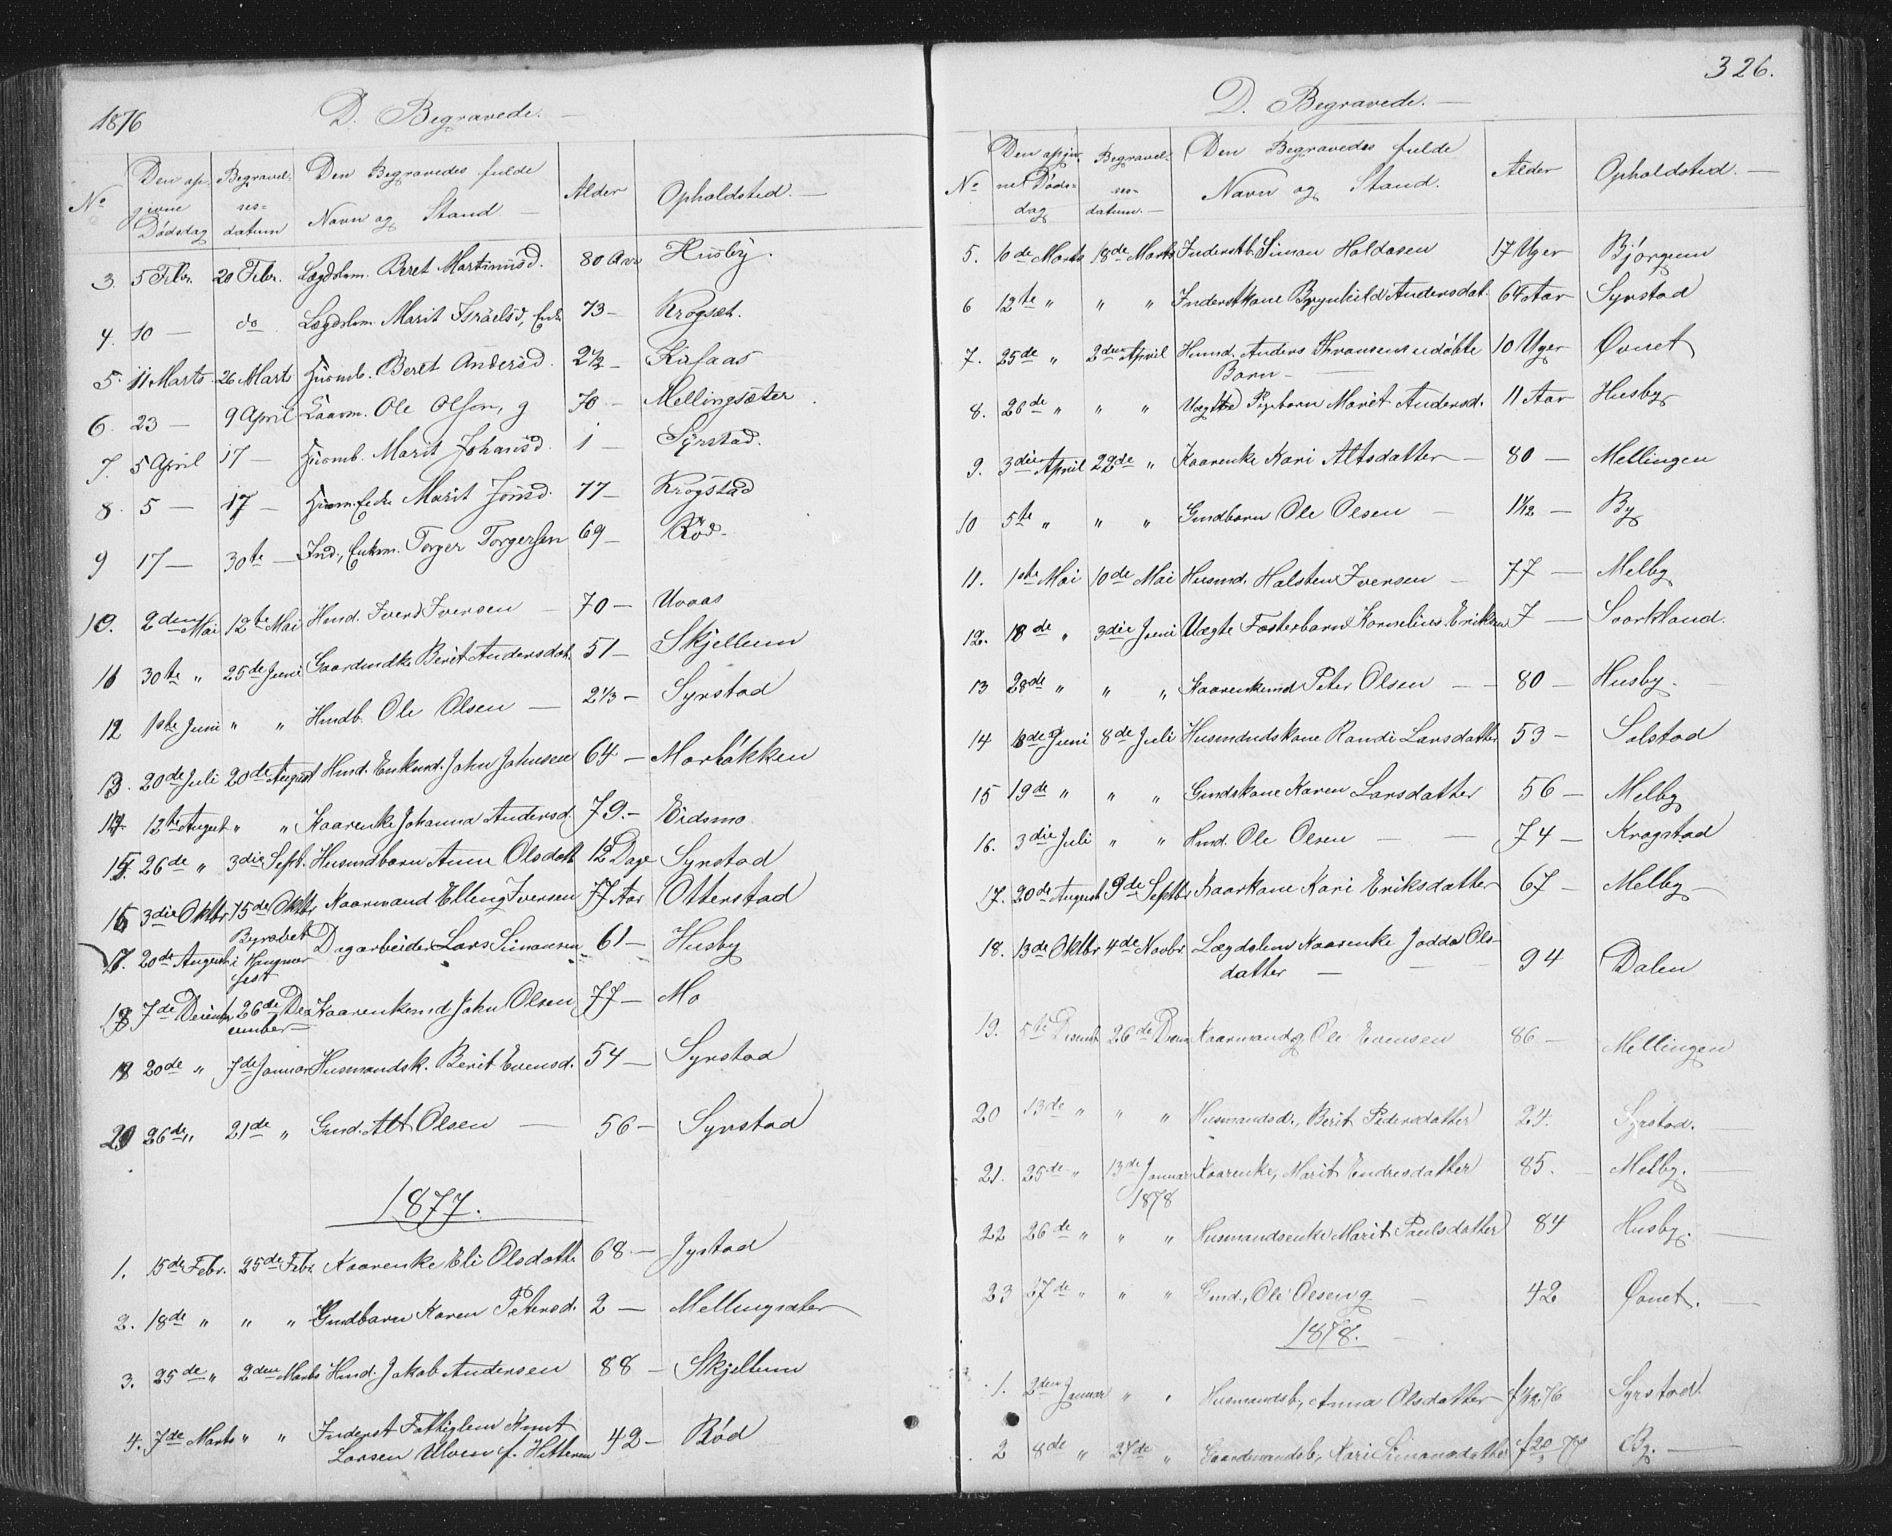 1876 D. Begravede. —
No Den op-givne Dødsdag Begravel-ses-datum Den Begravedes fulde Navn og Stand — Alder Opholdsted. —
3. 5 Febr. 20 Febr. Lægdslem. Beret Martinusd. 80 Aar Husby.
4. 10 — do Lægdslem. Marit Israelsd, Enke 73 — Krogset.
5. 11 Marts 26 Marts Huusmb. Beret Andersd. 2½ — Kirfaas
6. 23 — 9 April Kaarm. Ole Olsen, g 70 — Mellingsæter.
7. 5 April 17 — Huusmb. Marit Johansd. 1 — Syrstad.
8. 5 — 17 — Huusm. Enke Marit Jonsd. 77 — Krogstad
9 17 — 30te — Ind., Enkm. Torger Torgersen 69 — Rød.
10. 2den Mai 12te Mai Hmd. Iver Iversen — 70 — Uvaas
11 30te " 25de Juni Gaardmdke Berit Andersdat. 51 — Skjellum
12 1ste Juni " " Hmdb. Ole Olsen — 2⅓ — Syrstad
13. 20de Juli 20de August Hmd. Enkemd. John Johnsen 64 — Morløkken
14 12te August " " Kaarenke Johanna Andersd. 79. — Eidsmo
15 26de " 3die Septb. Husmdbarn Anne Olsdatt 12 Dage Syrstad
16 3die Oktbr 15de Oktbr Kaarmand Elling Iversen 77 Aar Otterstad
17. 20de August Byraabet i Haugnes fest Dagarbeider Lars Simonsen 61 — Husby
18 7de Decemb. 26de December Kaarenkemd John Olsen 77 — Mo
19 20de " 7de Januar Husmandsk. Berit Evensd. 54 — Syrstad
20 26de " 21de " Gmd. Alt Olsen — 56 — Syrstad
1877.
1. 15de Febr. 25de Febr. Kaarenke Eli Olsdatte 68 — Jystad
2. 18de " " " Gmdbarn Karen Petersd. 2 — Mellingsæter
3. 25de " 2den Marts Hmd. Jakob Andersen 88 — Skjellum
4. 7de Marts " " Inderst Fattiglem Knut Larsen Ulven f. Hitteren 42 — Rød
326.
D. Begravede. —
No Den opgiv-ne Døds-dag Begravel-ses-datum. — Den Begravedes fulde Navn og Stand. Alder Opholdsted. —
5. 10de Marts 18de Marts Inderstb. Simon Haldosen 17 Uger Bjørgum
6 12te " " " Inderstkone Brynhild Andersdat. 64 Aar Syrstad
7. 25de " 2den April Husmd. Anders Thronsens udøbte 10 Uger Øvnet
Barn —
8. 26de " " " Uægte Pigebarn Marit Andersd. 11 Aar Husby
9. 3die April 22de " Kaarenke Kari Altsdatter — 80 — Mellingen
10 5te " " " Gmdbarn Ole Olsen — 1½ — By
11. 1ste Mai 10de Mai Husmd. Halsten Iversen — 77 — Melby
12. 18de " 3die Juni Uægte Fosterbarn Kornelius Eriksen 7 — Svorkland.
13 28de " " " Kaarenkemd Peter Olsen — 80 — Husby. —
14 8de Juni 8de Juli Husmandskone Randi Larsdatter 53 — Solstad
15 19de " " " Gmdskone Karen Larsdatter 56 — Melby
16. 3die Juli " " Hmd. Ole Olsen — — 74 — Krogstad
17. 20de August 9de Septbr Kaarkone Kari Eriksdatter 67 — Melby —
18. 13de Oktbr 4de Novbr. Lægdslem Kaarenke Jodda Ols-
datter — — 94 Dalen
19. 5te Decemb 26de Decem Kaarmand g Ole Evensen 86 — Mellingen
20 13de " " " Husmandsd., Berit Pedersdatter 24. Syrstad. —
21. 25de " 13de Januar 1878 Kaarenke, Marit Endresdatter 85. — Melby.
22 26de " " " Husmandsenke Marit Paulsdatter 84 Husby. —
23 27de " " " Gmd., Ole Olsen g — 42 Øvnet. —
1878.
1. 2den Januar " " Husmandsb., Anna Olsdatter f 76 Syrstad.
2 8de " 27de " Gaardmandsb., Kari Simonsdatter f 20 77 By. —